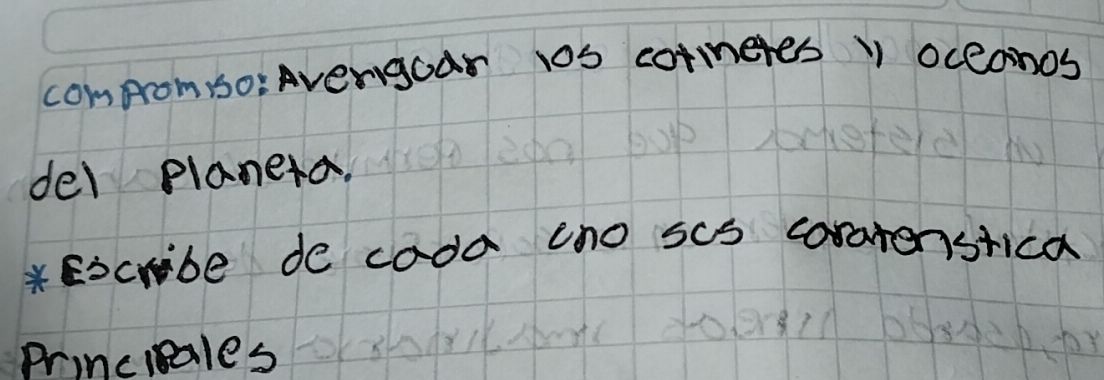 compromiso: Averiguar los cotinetes y oceanos
del Planeta.
* Escribe de cada uno sus carateristica
Principales